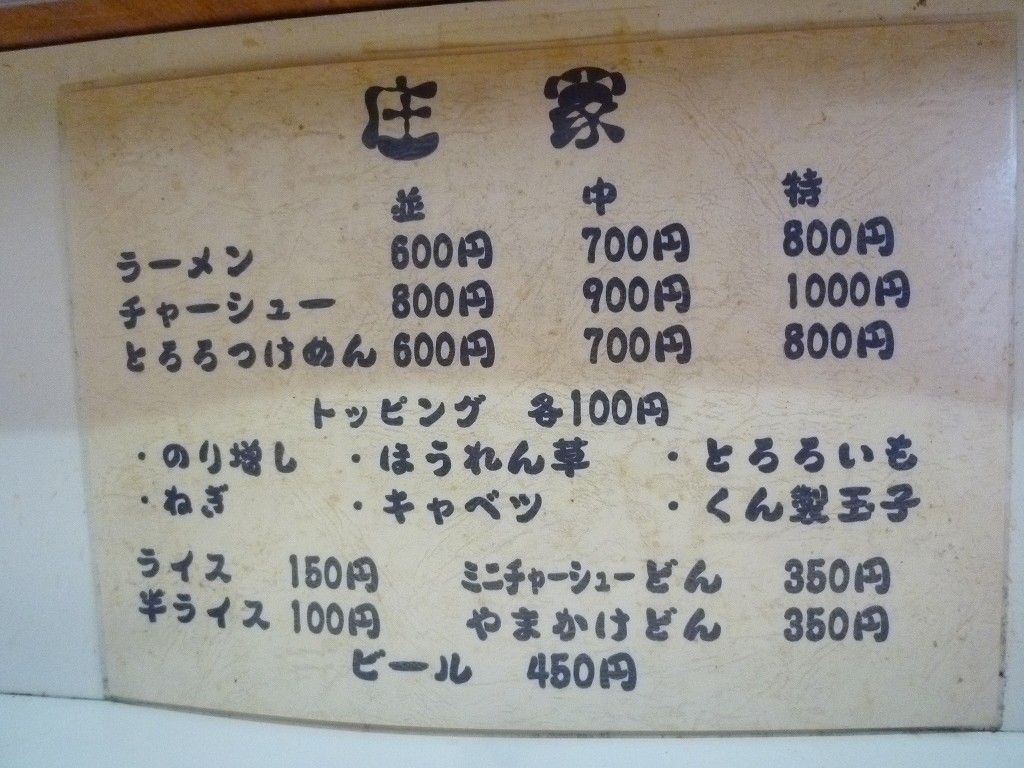 庄家
並 中 特
ラーメン 600円 700円 800円
チャーシュー 800円 900円 1000円
とろろつけめん 600円 700円 800円
トッピング 各100円
・のり増し ・ほうれん草 ・とろろいも
・ねぎ ・キャベツ ・くん製玉子
ライス 150円 ミニチャーシューどん 350円
半ライス 100円 やまかけどん 350円
ビール 450円